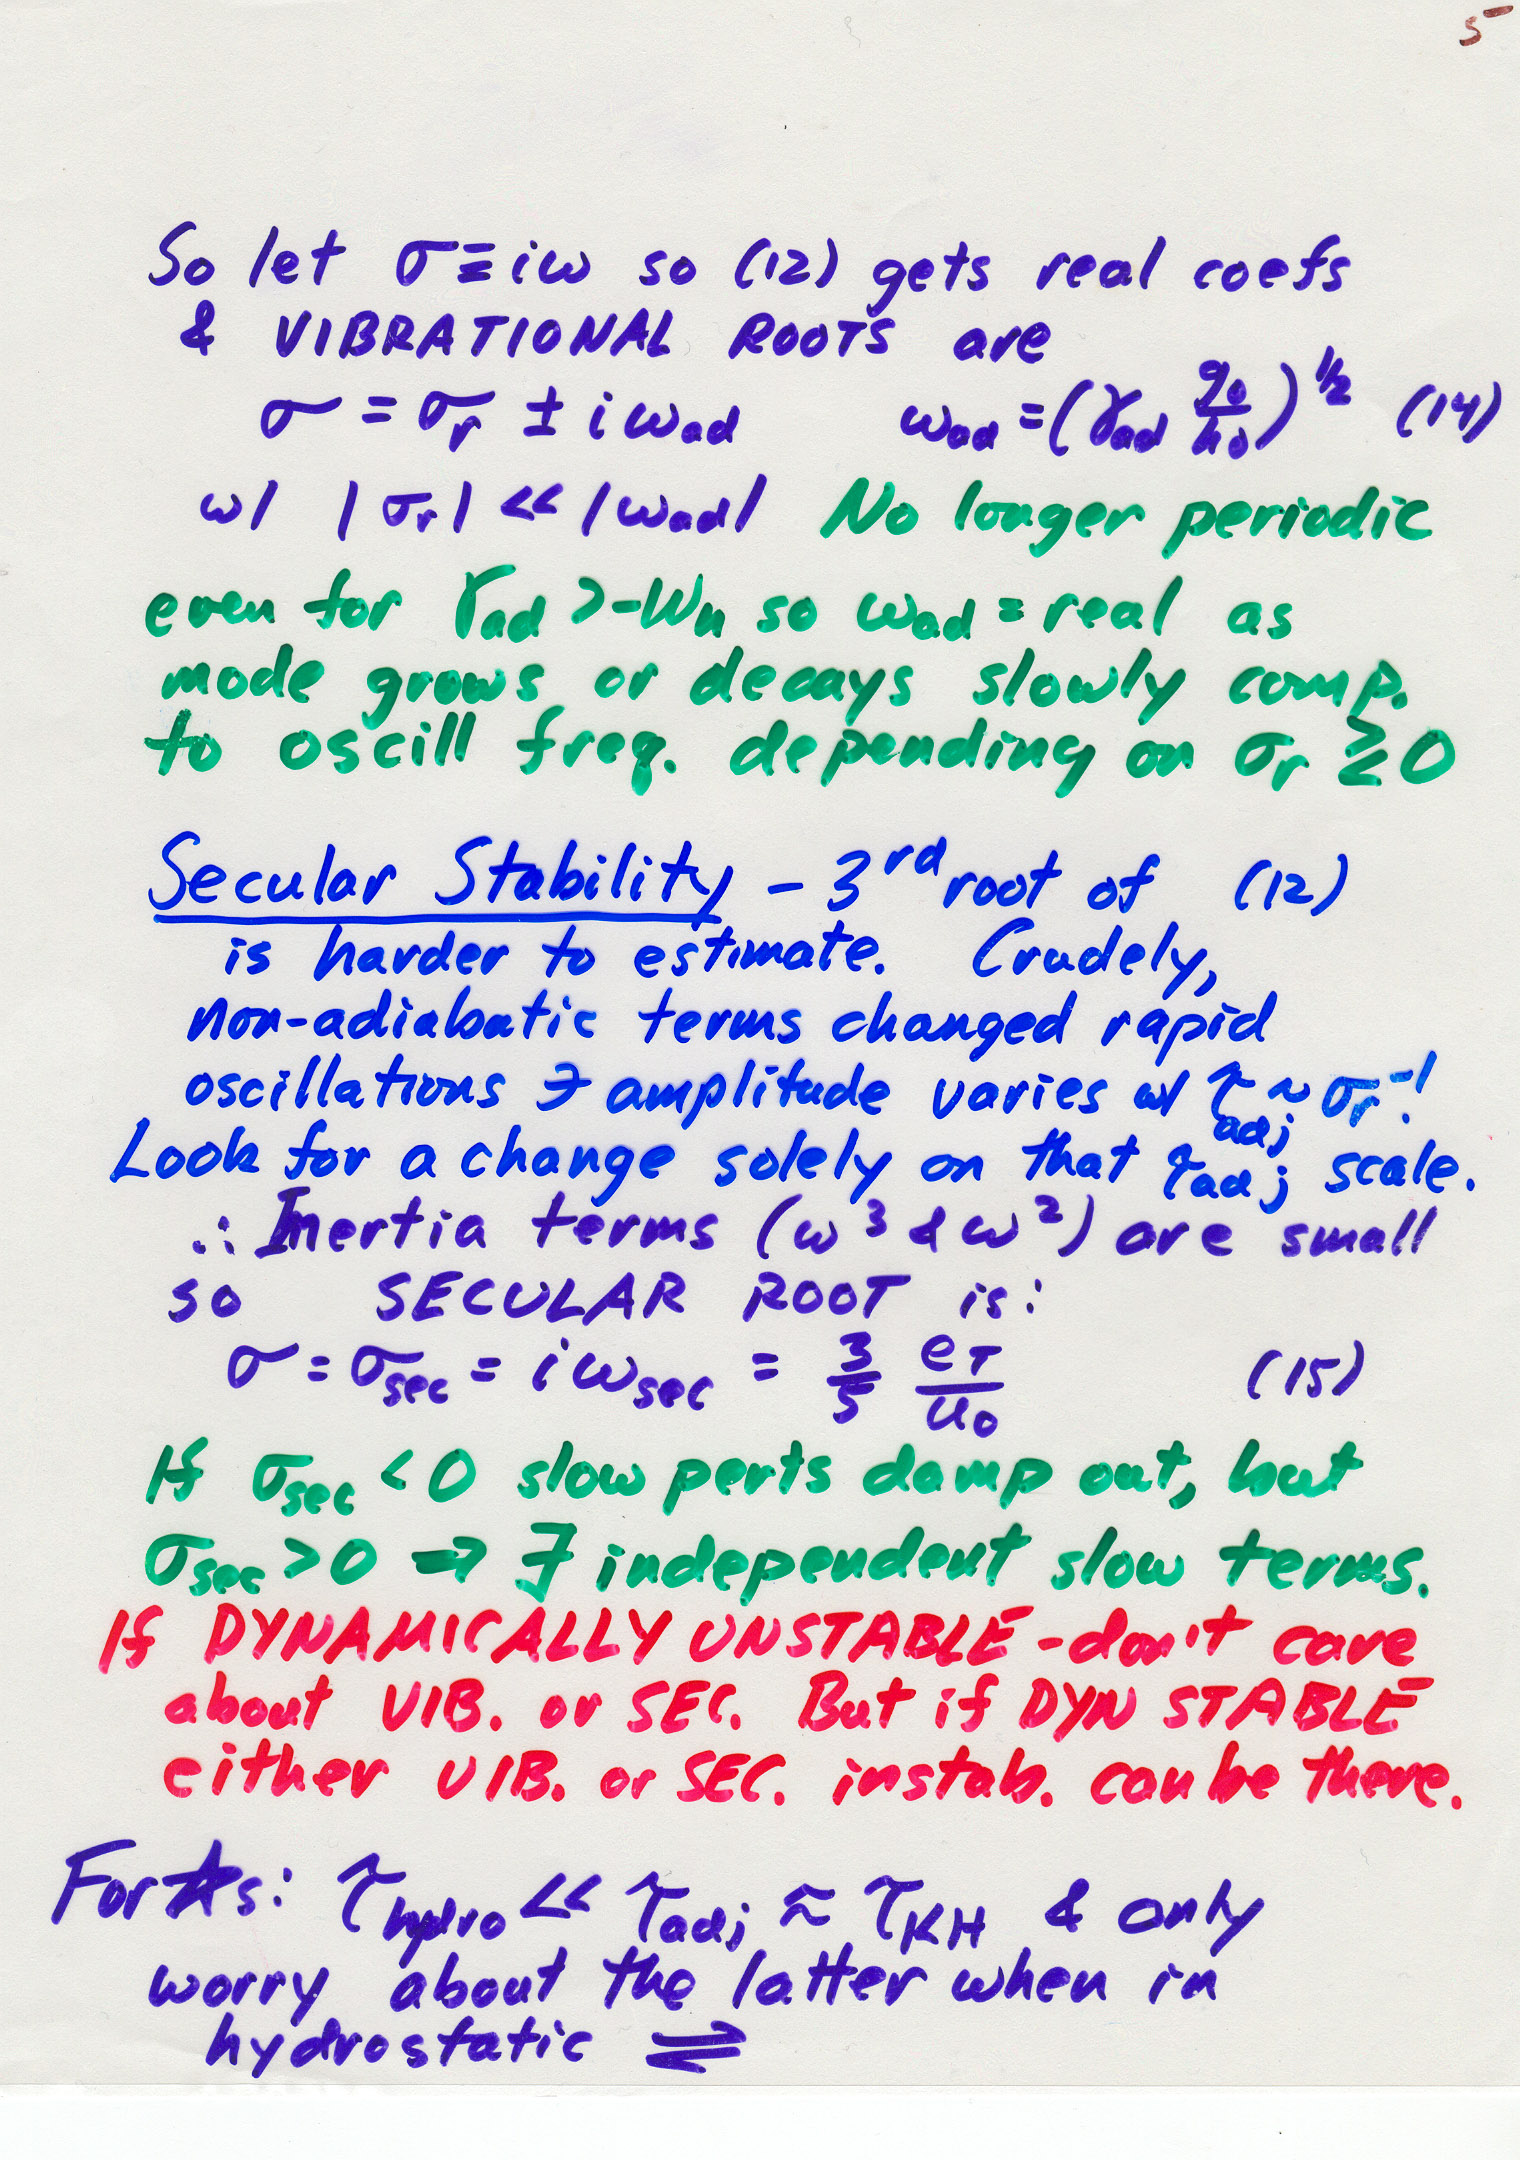 5
So let σ ≡ iω so (12) gets real coefs
& VIBRATIONAL ROOTS are
σ = σr ± iωad ωad = (γad g0/h0)^1/2 (14)
w/ |σr| << |ωad| No longer periodic
even for γad > -Wn so ωad = real as
mode grows or decays slowly comp.
to oscill freq. depending on σr ≷ 0
Secular Stability - 3rd root of (12)
is harder to estimate. Crudely,
non-adiabatic terms changed rapid
oscillations ∋ amplitude varies w/ τadj ~ σr^-1!
Look for a change solely on that τadj scale.
∴ Inertia terms (ω³ & ω²) are small
so SECULAR ROOT is:
σ = σsec = iωsec = 3/5 eT/u0 (15)
If σsec < 0 slow perts damp out, but
σsec > 0 ⇒ ∃ independent slow terms.
If DYNAMICALLY UNSTABLE - don't care
about VIB. or SEC. But if DYN STABLE
either VIB. or SEC. instab. can be there.
For ☆s: τhydro << τadj ≈ τKH & only
worry about the latter when in
hydrostatic ⇌